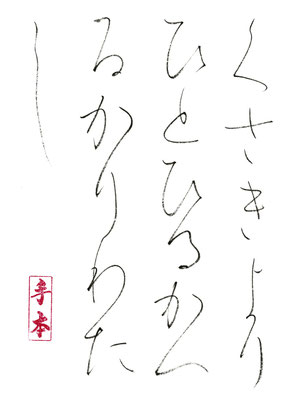 くさきより
ひとひるかへ
るかりわた
し
手本